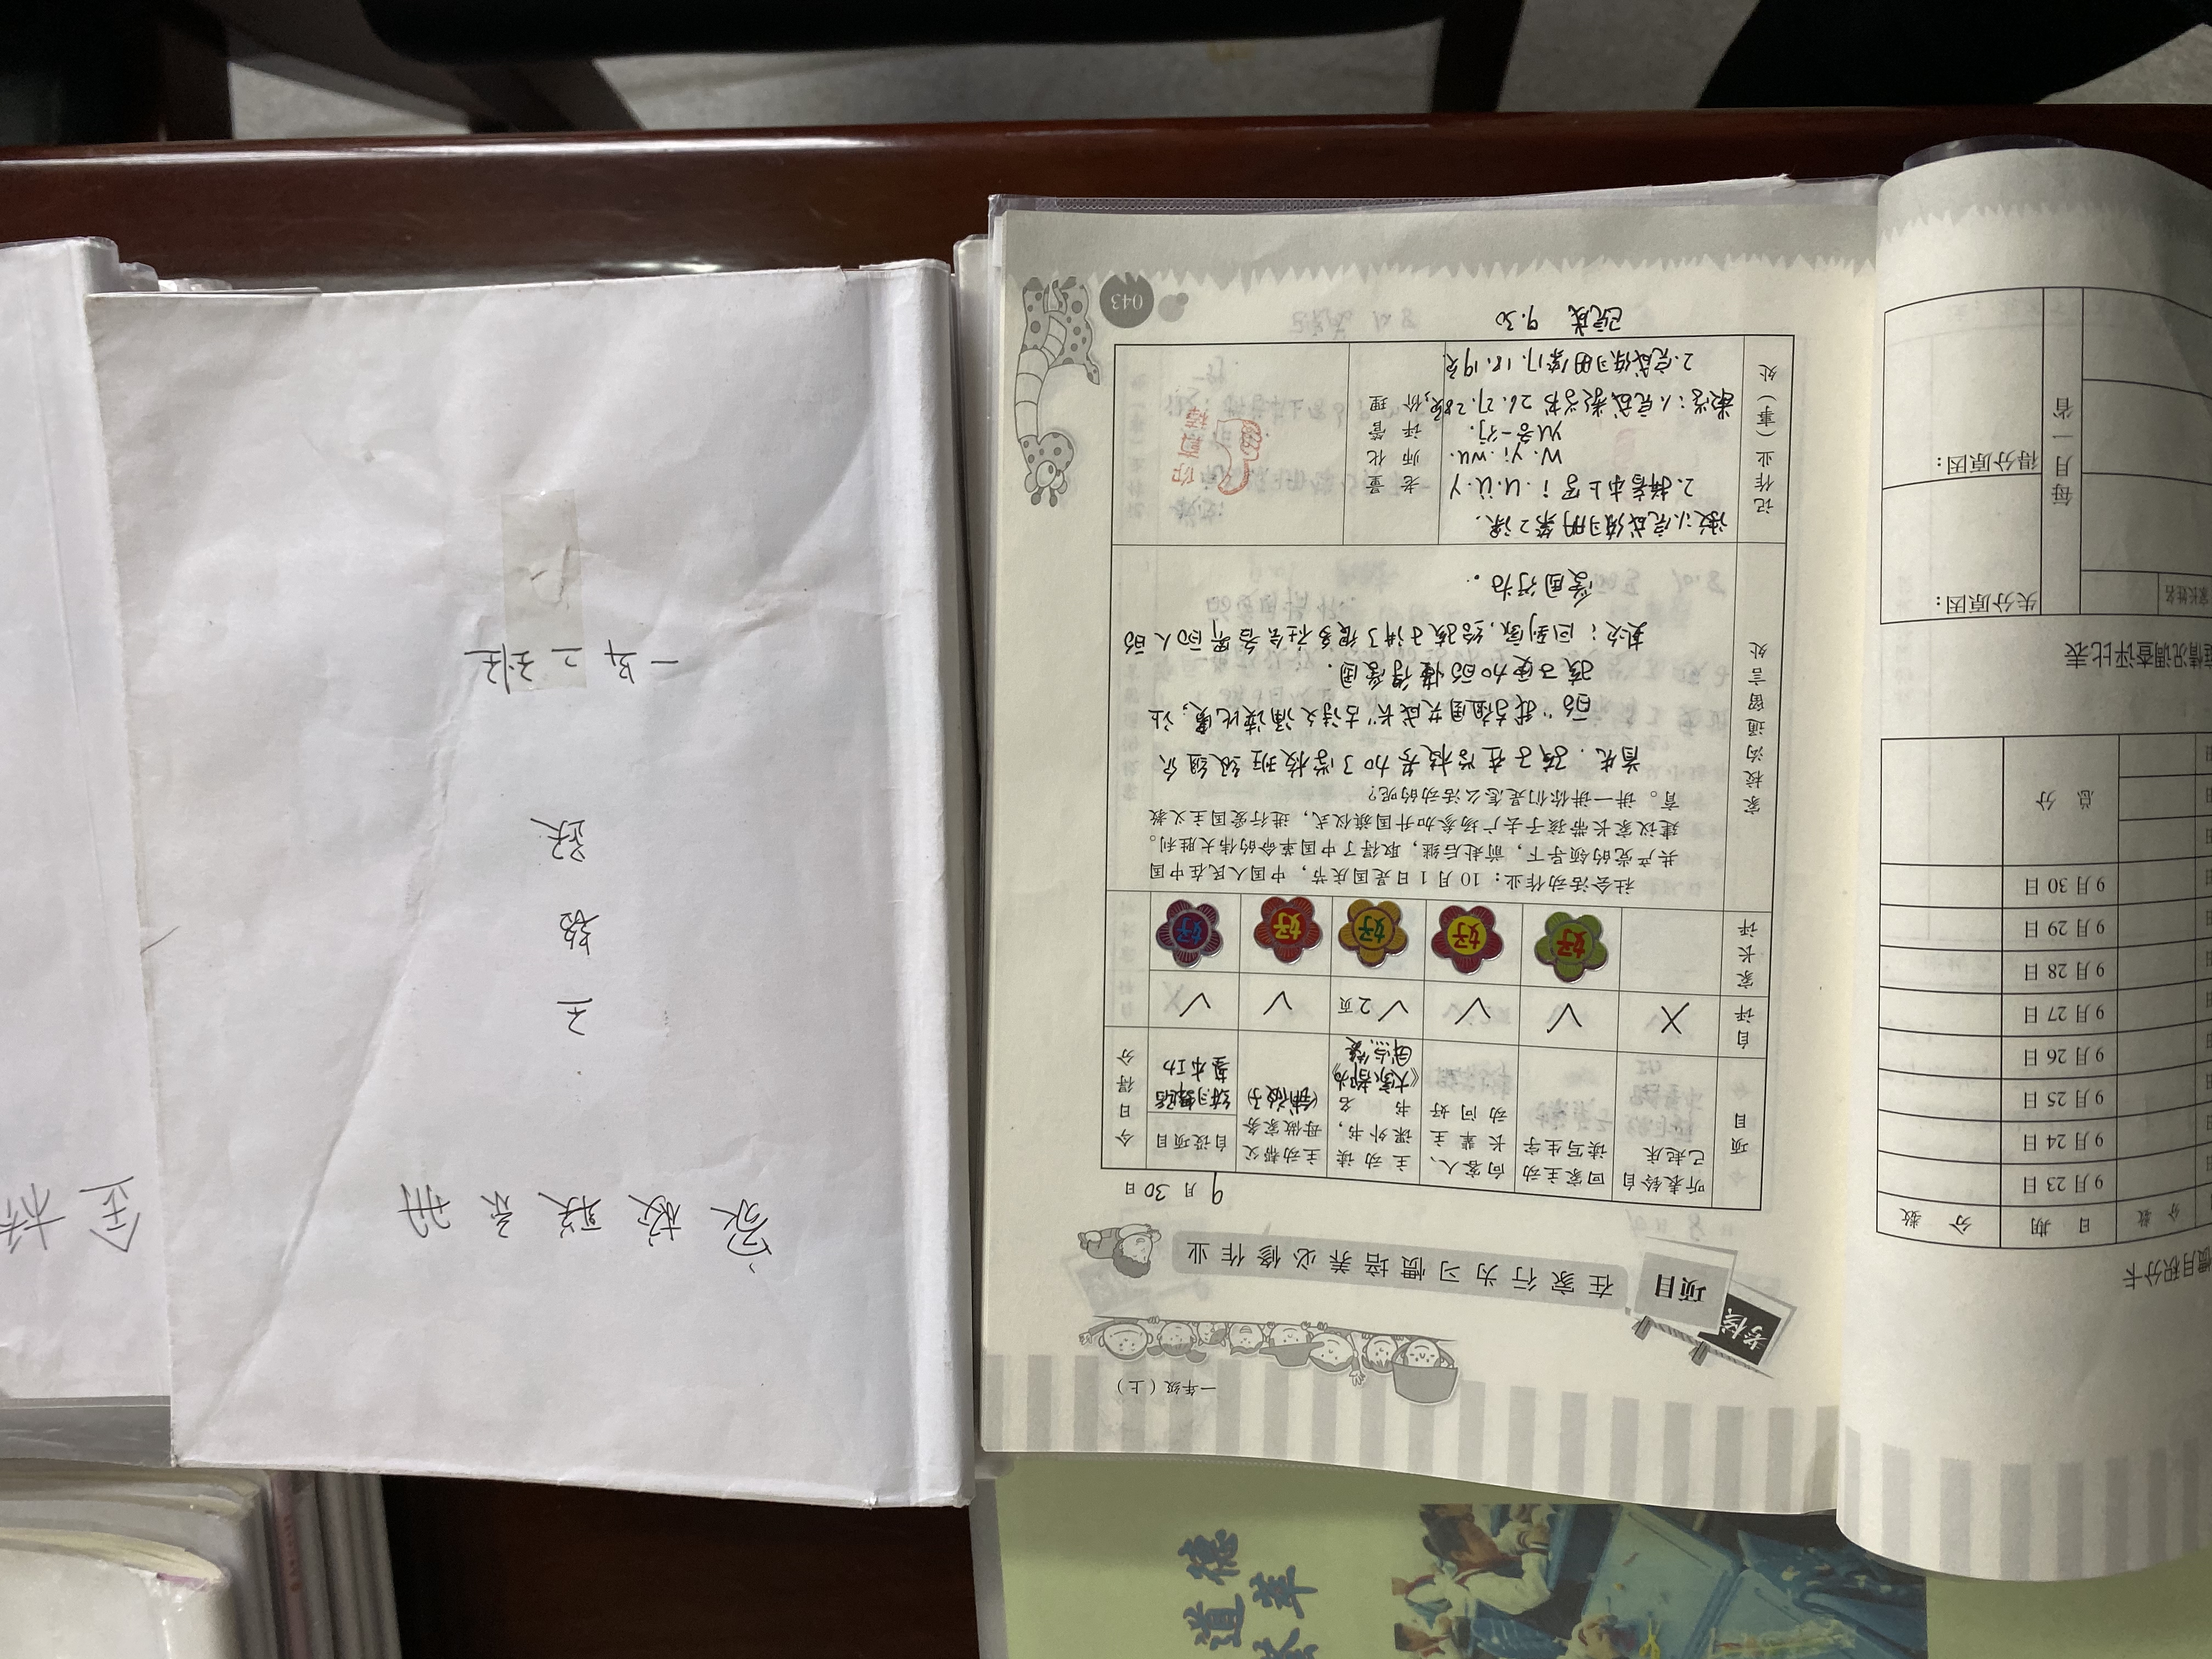 一年级（上）
考核
项目
在家行为习惯培养必修作业
9月30日
项目
听表铃自己起床
回家主动读写生字
向客人、长辈主动问好
主动读课外书，书名
《大家都为
主动帮父母做家务
自设项目
练习舞蹈
基本功
今日得分
自评
X
√
√
√ 2页
√
√
家长评
好
好
好
好
好
家校沟通留言处
社会活动作业：10月1日是国庆节，中国人民在中国
共产党的领导下，前赴后继，取得了中国革命的伟大胜利。
建议家长带孩子去广场参加升国旗仪式，进行爱国主义教
育。讲一讲你们是怎么活动的呢？
首先，孩子在学校参加了学校班级组织
的"我与祖国共成长"古诗文诵读比赛，让
孩子更加的懂得爱国。
其次：回到家，给孩子讲了很多社会各界同人的
爱国行为。
记作业（事）处
1.完成练习册第2课。
2.拼音本上写 i.u.ü.y
w.yi.wu.
数学：1.完成数学书26.27.28页，
2.完成练习册第17.18.19页
老师评价
童化管理
你真棒
已完成 9.30
043
惯月积分卡
日期
分数
分数
9月23日
9月24日
9月25日
9月26日
9月27日
9月28日
9月29日
9月30日
总分
庭情况调查评比表
家长姓名
每月一省
失分原因：
得分原因：
家校联系册
一年二班
金桥
道德